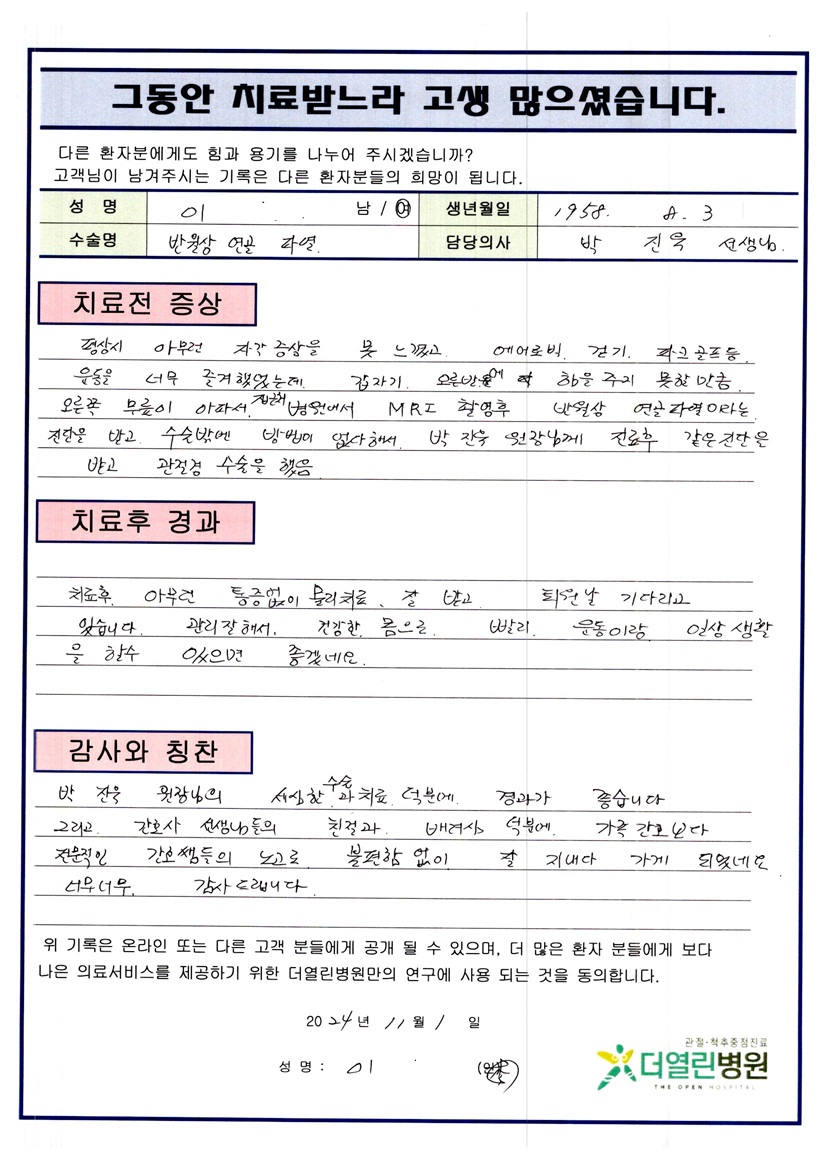 그동안 치료받느라 고생 많으셨습니다.
다른 환자분에게도 힘과 용기를 나누어 주시겠습니까?
고객님이 남겨주시는 기록은 다른 환자분들의 희망이 됩니다.
성 명 이 남 / 여 생년월일 1958. 8. 3
수술명 반월상 연골 파열. 담당의사 박 진욱 선생님.
치료전 증상
평상시 아무런 자각증상을 못 느꼈고. 에어로빅. 걷기. 파크골프등.
운동을 너무 즐겨했었는데. 갑자기. 오른발에 힘을 주지 못할만큼
오른쪽 무릎이 아파서. 병원에서 MRI 촬영후 반월상 연골파열이라는
진단을 받고 수술밖엔 방법이 없다해서. 박 진욱 원장님께 진료후 같은진단을
받고 관절경 수술을 했음
치료후 경과
치료후. 아무런 통증없이 물리치료. 잘 받고. 퇴원날 기다리고
있습니다. 관리잘해서. 건강한 몸으로. 빨리. 운동이랑 일상생활
을 할수 있으면 좋겠네요.
감사와 칭찬
박 진욱 원장님의 세심한 수술과치료 덕분에. 경과가 좋습니다
그리고. 간호사 선생님들의 친절과. 배려심 덕분에. 가족간호보다
전문적인 간호쌤들의 노고로 불편함 없이 잘 지내다 가게 되었네요
너무너무. 감사드립니다.
위 기록은 온라인 또는 다른 고객 분들에게 공개 될 수 있으며, 더 많은 환자 분들에게 보다
나은 의료서비스를 제공하기 위한 더열린병원만의 연구에 사용 되는 것을 동의합니다.
2024년 11월 1일
성 명 : 이
관절·척추중점진료
더열린병원
THE OPEN HOSPITAL